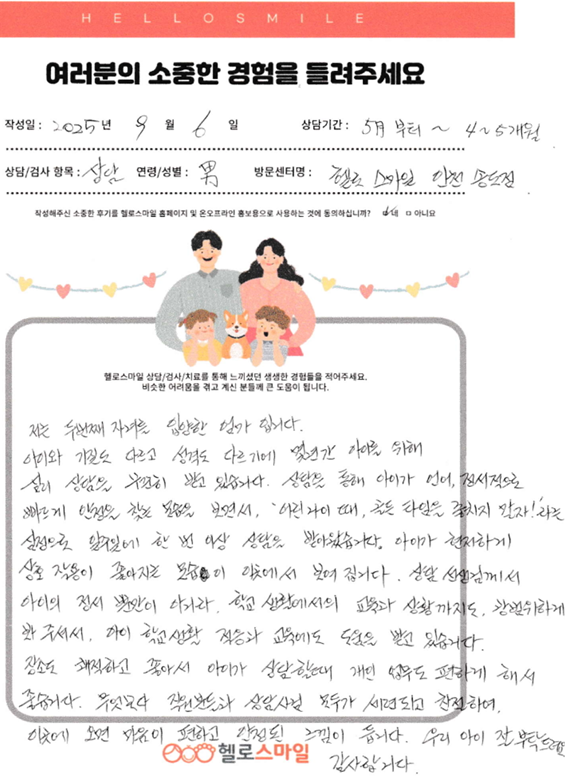 HELLOSMILE
여러분의 소중한 경험을 들려주세요
작성일 : 2025년 9월 6일 상담기간 : 5月 부터 ~ 4~5개월
상담/검사 항목 : 상담 연령/성별 : 男 방문센터명 : 헬로 스마일 인천 송도점
작성해주신 소중한 후기를 헬로스마일 홈페이지 및 온오프라인 홍보용으로 사용하는 것에 동의하십니까? ☑ 네 □ 아니요
헬로스마일 상담/검사/치료를 통해 느끼셨던 생생한 경험들을 적어주세요.
비슷한 어려움을 겪고 계신 분들께 큰 도움이 됩니다.
저는 두번째 자녀를 입양한 엄마 입니다.
아이와 기질도 다르고 성격도 다르기에 몇년간 아이를 위해
심리 상담을 꾸준히 받고 있습니다. 상담을 통해 아이가 언어, 정서적으로
빠르게 안정을 찾는 모습을 보면서, '어린아이 때, 골든 타임을 놓치지 말자!' 라는
심정으로 일주일에 한 번 이상 상담을 받아왔습니다. 아이가 현저하게
상호 작용이 좋아지는 모습이 이곳에서 보여 집니다. 상담 선생님께서
아이의 정서 뿐만이 아니라, 학교 생활에서의 교육과 상황까지도, 광범위하게
봐 주셔서, 아이 학교생활 적응과 교육에도 도움을 받고 있습니다.
장소도 쾌적하고 좋아서 아이가 상담할때 개인 업무도 편하게 해서
좋습니다. 무엇보다 직원분들과 상담사님 모두가 세련되고 친절하여,
이곳에 오면 마음이 편하고 안정된 느낌이 듭니다. 우리 아이 잘 부탁드려요
감사합니다.
헬로스마일